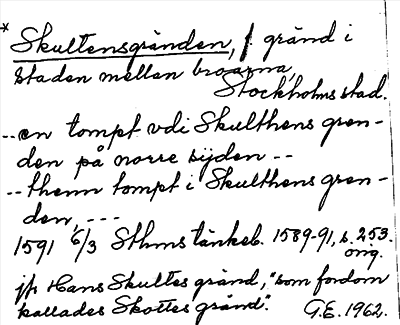 * Skultensgränden, f. gränd i
staden mellan broarna,
Stockholms stad.
-- en tompt vdi Skulthens gren-
den på norre sijden --
-- thenn tompt i Skulthens gren-
den, ---
1591 6/3 Sthms tänkeb. 1589-91, s. 253.
orig.
jfr Hans Skultes gränd, "som fordom
kallades Skottes gränd".
G.E. 1962.